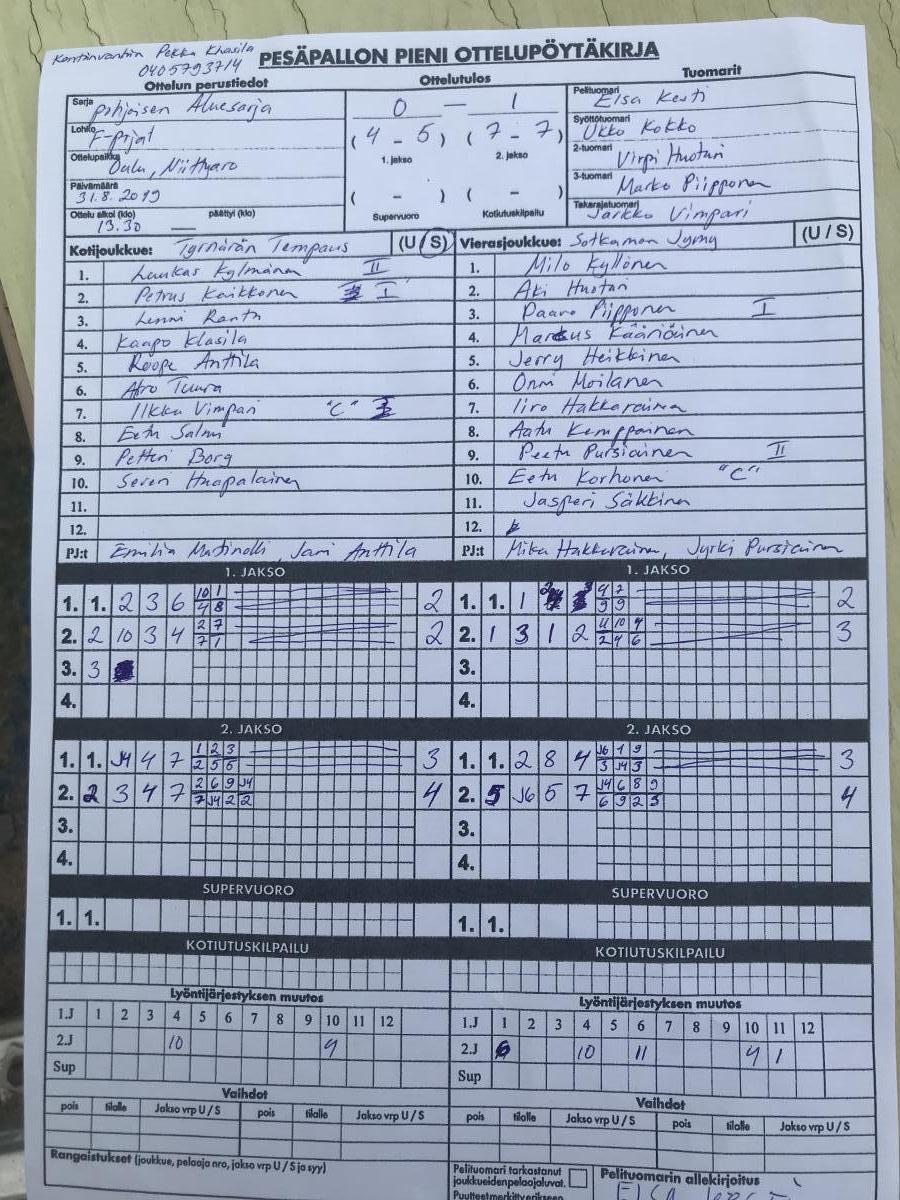 Kentänvanhin Pekka Klasila
0405793714
PESÄPALLON PIENI OTTELUPÖYTÄKIRJA
Ottelun perustiedot Ottelutulos Tuomarit
Sarja Pohjoisen Aluesarja
Lohko F-pojat
Ottelupaikka Oulu, Niittyaro
Päivämäärä 31.8.2019
Ottelu alkoi (klo) päättyi (klo)
13.30 —
0 — 1
(4 - 5) (7 - 7)
1. jakso 2. jakso
( - ) ( - )
Supervuoro Kotiutuskilpailu
Pelituomari Elsa Kesti
Syöttötuomari Ukko Kokko
2-tuomari Virpi Huotari
3-tuomari Marko Piipponen
Takarajatuomari Jarkko Vimpari
Kotijoukkue: Tyrnävän Tempaus (U/S)
1. Luukas Kylmänen II
2. Petrus Keikkonen I
3. Lenni Ranta
4. Kaapo Klasila
5. Roope Anttila
6. Atro Tuura
7. Ilkka Vimpari "C"
8. Eetu Salmi
9. Petteri Borg
10. Severi Haapalainen
11.
12.
PJ:t Emilia Jari Anttila
Vierasjoukkue: Sotkamon Jymy (U/S)
1. Milo Kyllönen
2. Aki Huotari
3. Paavo Piipponen I
4. Markus Kääriäinen
5. Jerry Heikkinen
6. Onni Moilanen
7. Iiro Hakkarainen
8. Aatu Kemppainen
9. Peetu Pursiainen II
10. Eetu Korhonen "C"
11. Jasperi Säkkinen
12.
PJ:t Mika Hakkarainen, Jyrki Pursiainen
1. JAKSO 1. JAKSO
1. 1. 2 3 6 10 1 2 1. 1. 1 4 7 2
4 8 9 9
2. 2 10 3 4 2 7 2 2. 1 3 1 2 11 10 4 3
7 1 2 4 6
3. 3 3.
4. 4.
2. JAKSO 2. JAKSO
1. 1. J4 4 7 1 2 3 3 1. 1. 2 8 4 J6 1 9 3
2 5 6 3 J4 3
2. 2 3 4 7 2 6 9 J4 4 2. 5 J6 5 7 J4 6 8 9 4
7 J4 2 2 6 9 2 3
3. 3.
4. 4.
SUPERVUORO SUPERVUORO
1. 1. 1. 1.
KOTIUTUSKILPAILU KOTIUTUSKILPAILU
Lyöntijärjestyksen muutos Lyöntijärjestyksen muutos
1.J 1 2 3 4 5 6 7 8 9 10 11 12 1.J 1 2 3 4 5 6 7 8 9 10 11 12
2.J 10 4 2.J 6 10 11 4 1
Sup Sup
Vaihdot Vaihdot
pois tilalle Jakso vrp U / S pois tilalle Jakso vrp U / S pois tilalle Jakso vrp U / S pois tilalle Jakso vrp U / S
Rangaistukset (joukkue, pelaaja nro, jakso vrp U / S ja syy)
Pelituomari tarkastanut
joukkueidenpelaajaluvat.
Pelituomarin allekirjoitus